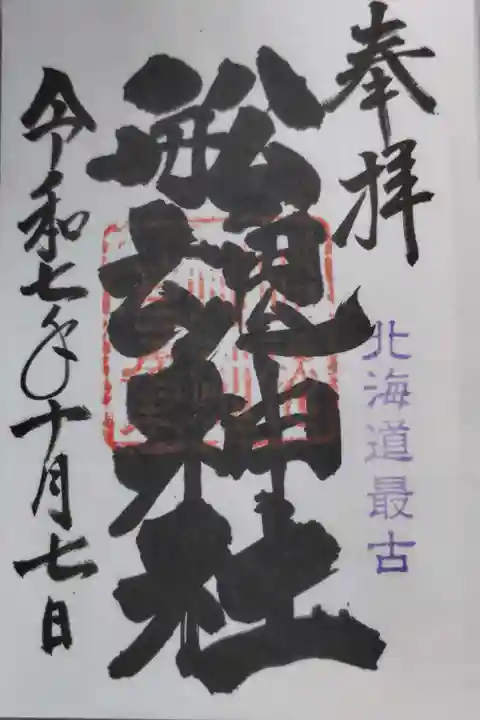 奉拝
北海道最古
舩魂神社
令和七年十月七日